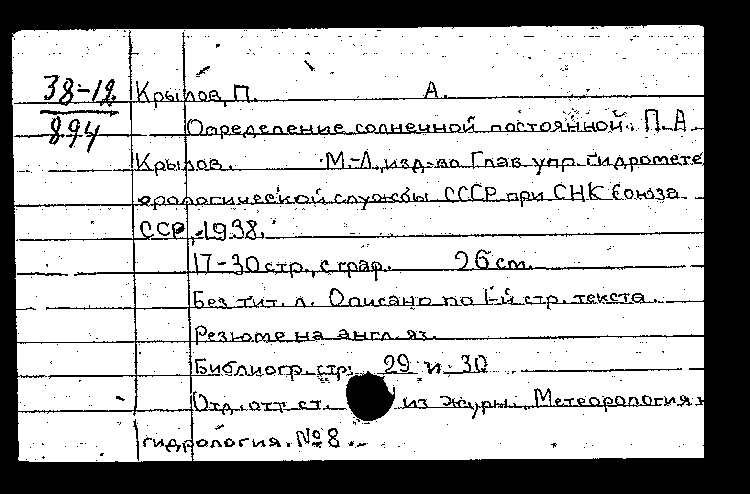 38-12
894
Крылов, П. А.
Определение солнечной постоянной. П. А
Крылов. М.-Л., изд-во Глав. упр. гидромете
орологической службы СССР при СНК Союза
ССР, 1938.
17-30 стр., с граф. 26 см.
Без тит. л. Описано по 1-й стр. текста.
Резюме на англ. яз.
Библиогр. стр. 29 и 30
Отд. отт. ст. из журн. Метеорология и
гидрология. № 8.